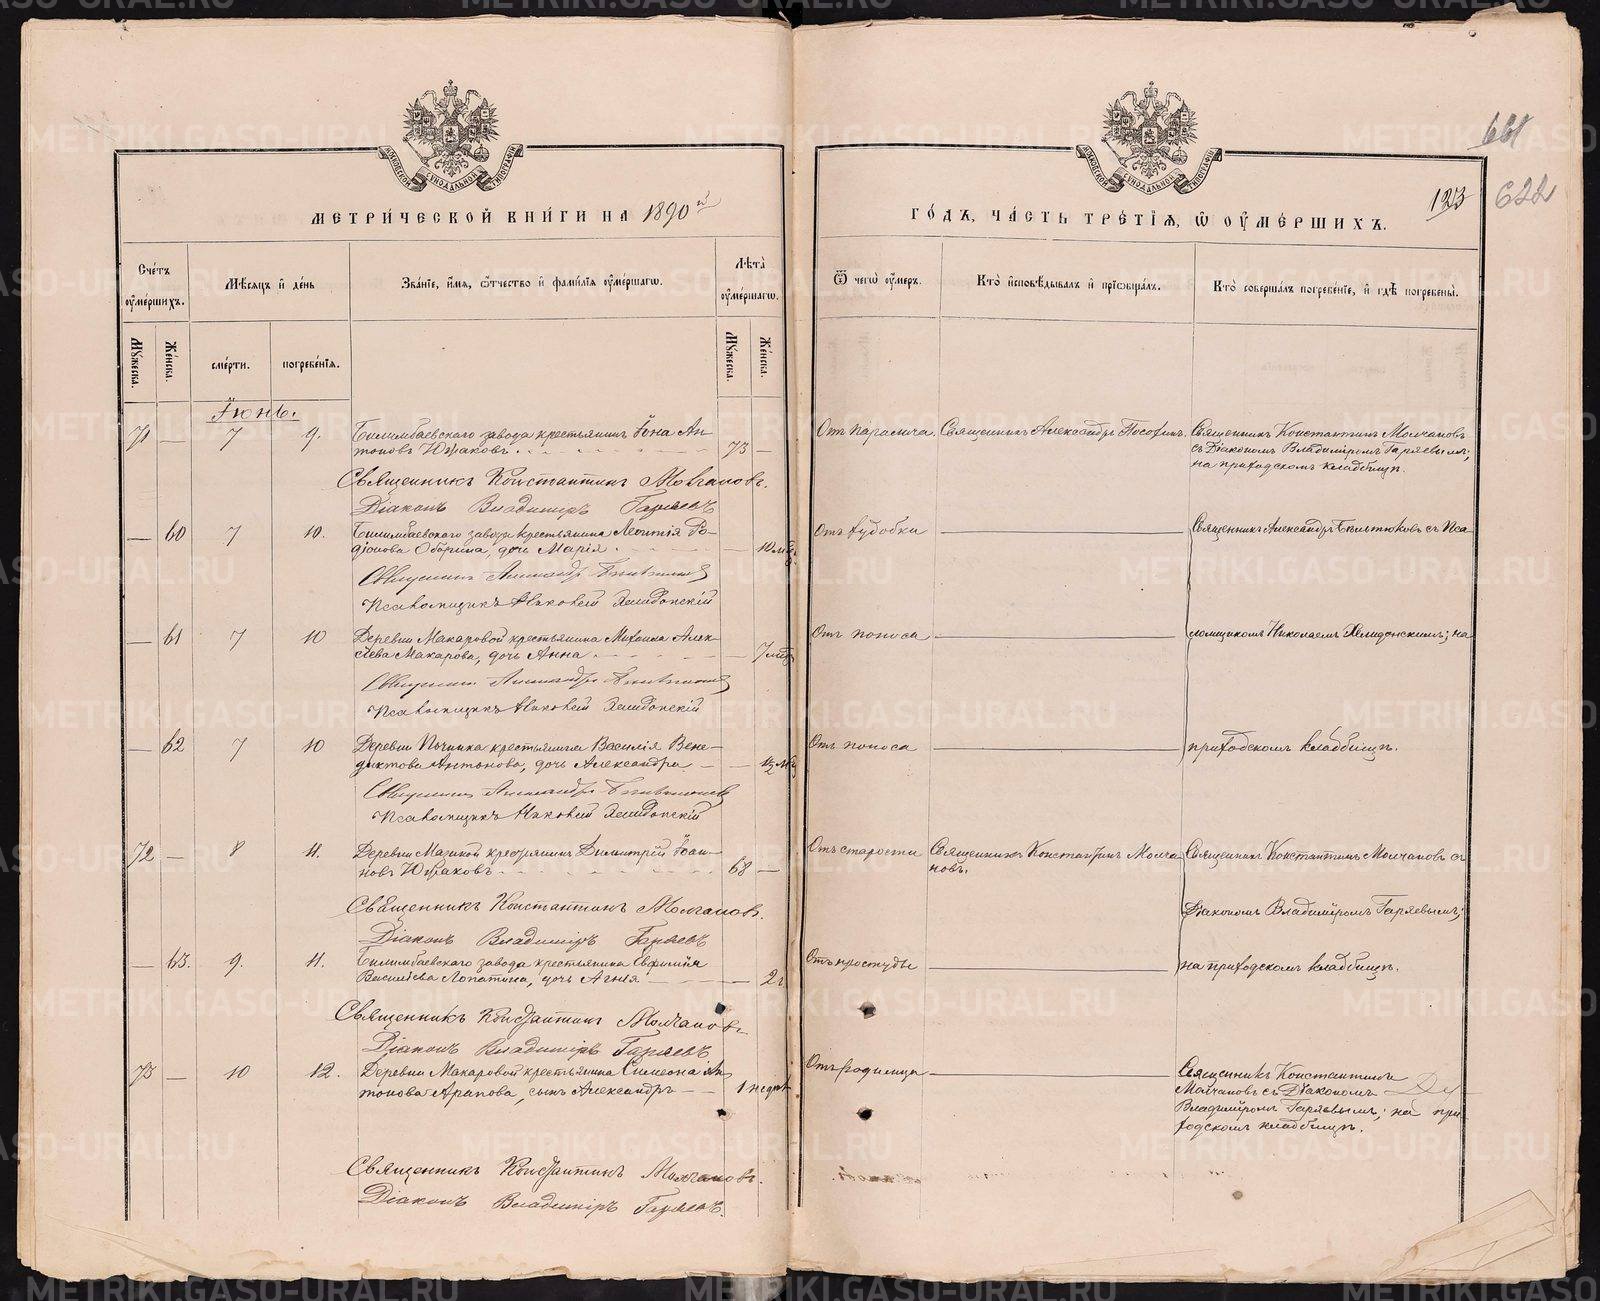 МОСКОВСКОЙ СУНОДАЛЬНОЙ ТИПОГРАФІИ
МЕТРИ́ЧЕСКОЙ КНИ́ГИ НА 1890й
Сче́тъ ᲂу҆ме́ршихъ.
Мѣ́сяцъ и҆ де́нь
Зва́нїе, и҆́мя, ѻ҆́тчество и҆ фами́лїя ᲂу҆ме́ршагѡ.
Лѣта̀ ᲂу҆ме́ршагѡ.
Мꙋ́жеска.
Же́нска.
сме́рти.
погребе́нїя.
Мꙋ́жеска.
Же́нска.
Іюнь.
71 — 7 9. Билимбаевскаго завода крестьянинъ Іона Ан-
тоновъ Южаковъ. 73 —
Священникъ Константинъ Молчановъ.
Діаконъ Владиміръ Гаряевъ
— 60 7 10. Билимбаевскаго завода крестьянина Леонтія Ро-
діонова Оборина, дочь Марія. — 10 мѣс.
Священникъ Александръ
Псаломщикъ Николай Хелидонскій
— 61 7 10 Деревни Макаровой крестьянина Михаила Алек-
сѣева Макарова, дочь Анна. — 7 мѣс
Священникъ Александръ
Псаломщикъ Николай Хелидонскій
— 62 7 10 Деревни Починка крестьянина Василія Вене-
диктова Антонова, дочь Александра — 1/2 мѣс
Священникъ Александръ
Псаломщикъ Николай Хелидонскій
72 — 8 11. Деревни крестьянинъ Димитрій Іоан-
новъ Южаковъ. 68 —
Священникъ Константинъ Молчановъ.
Діаконъ Владиміръ Гаряевъ
— 63. 9. 11. Билимбаевскаго завода крестьянина Евфимія
Васильева Лопатина, дочь Агнія — 2 г
Священникъ Константинъ Молчановъ
Діаконъ Владиміръ Гаряевъ
73 — 10 12. Деревни Макаровой крестьянина Симеона Ан-
тонова Арапова, сынъ Александръ — 1 недѣл
Священникъ Константинъ Молчановъ.
Діаконъ Владиміръ Гаряевъ.
661
622
123
МОСКОВСКОЙ СУНОДАЛЬНОЙ ТИПОГРАФІИ
ГО́ДЪ, ЧА́СТЬ ТРЕ́ТІЯ, Ѽ ОУ҆МЕ́РШИХЪ.
Ѿ чегѡ̀ ᲂу҆́меръ.
Кто̀ и҆сповѣ́дывалъ и҆ прїѡбща́лъ.
Кто̀ соверша́лъ погребе́нїе, и҆ гдѣ̀ погребены̀.
Отъ паралича. Священникъ Александръ Священникъ Константинъ Молчановъ
съ Діакономъ Владиміромъ Гаряевымъ;
на приходскомъ кладбищѣ.
Отъ худобки — Священникъ Александръ съ Пса-
Отъ поноса — ломщикомъ Николаемъ Хелидонскимъ; на
Отъ поноса — приходскомъ кладбищѣ.
Отъ старости Священникъ Константинъ Молча Священникъ Константинъ Молчановъ съ
новъ.
Діакономъ Владиміромъ Гаряевымъ;
Отъ простуды — на приходскомъ кладбищѣ.
Отъ родимца — Священникъ Константинъ
Молчановъ съ Діакономъ
Владиміромъ Гаряевымъ; на при-
ходскомъ кладбищѣ.
METRIKI.GASO-URAL.RU